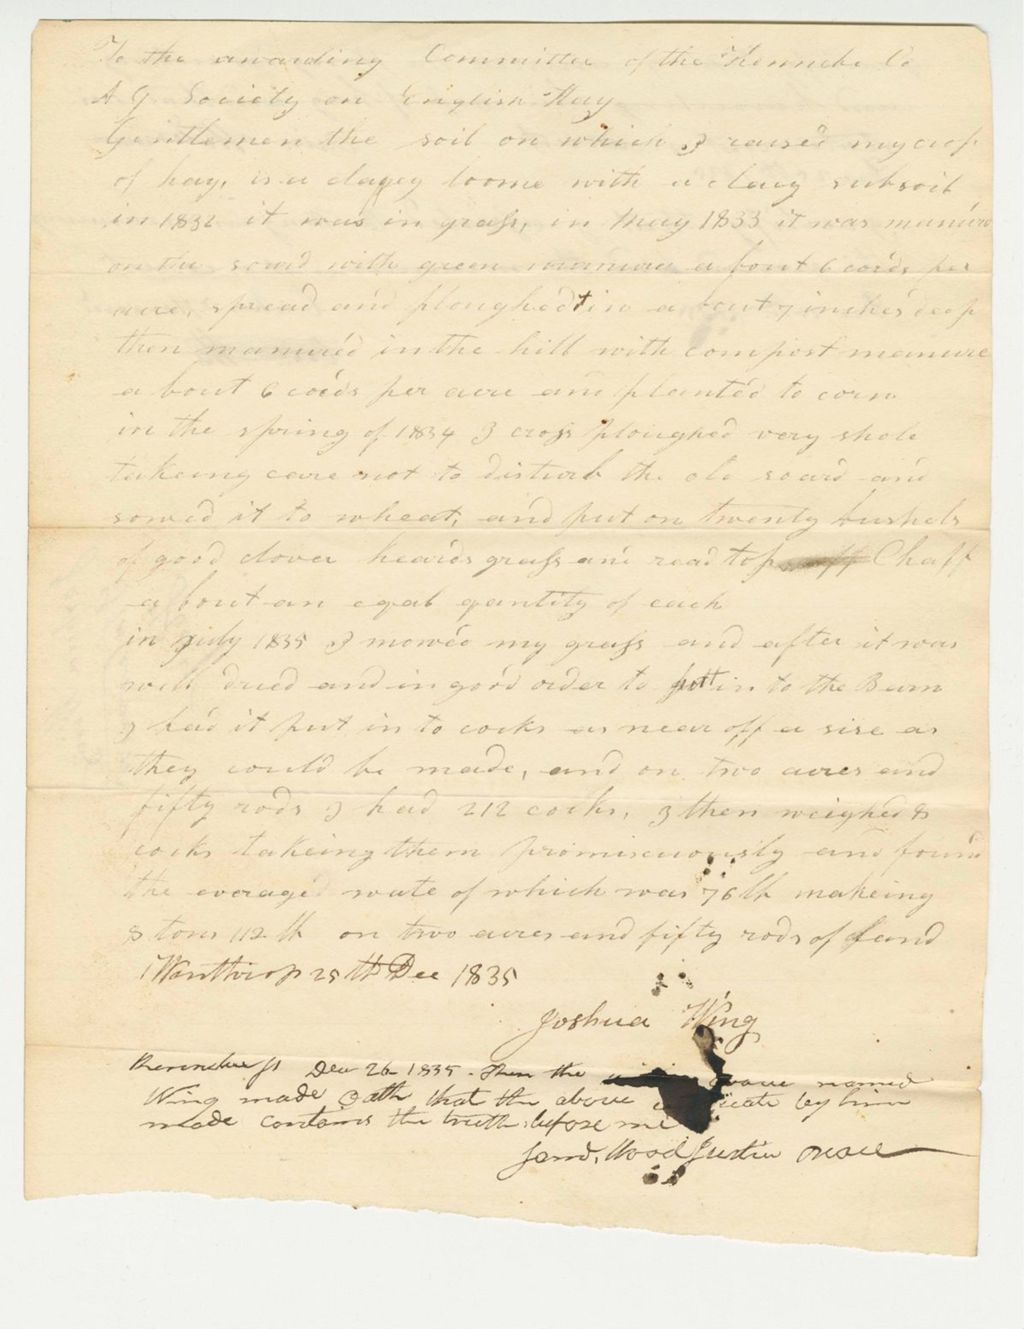 To the awarding Committee of the Kennebe Co
A G. Society on English Hay
Gentlemen the soil on which I raised my crop
of hay, is a clayey loome with a clay subsoil
in 1832 it was in grass, in May 1833 it was manúre
on the soard with green manure a bout 6 cords per
acre, spread and ploughed in a bout 7 inches deep
then manured in the hill with compost manure
a bout 6 cords per acre and planted to corn
in the spring of 1834 I cross ploughed very shole
takeing care not to disturb the old soard and
sowed it to wheat, and put on twenty bushels
of good clover heards grass and read top Chaff
a bout an eqal qantity of each
in July 1835 I mowed my grass and after it was
well dried and in good order to putt in to the Barn
I had it put in to cocks as near off a size as
they could be made, and on two acres and
fifty rods I had 212 cocks, I then weighed 8
cocks takeing them promiscuously and found
the average wate of which was 76 lb makeing
8 tons 112 lb on two acres and fifty rods of land
Wanthrop 25th Dec 1835
Joshua Wing
Kennebec ss Dec 26 1835. Then the above named
Wing made Oath that the above by him
made contains the truth, before me
Saml. Wood Justice Peace